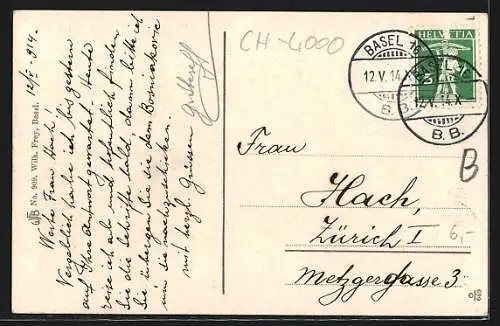 12/V 914.
Werte Frau Hach!
Vergeblich habe ich bis gestern
auf Ihre Antwort gewartet. Heute
reise ich ab und hoffentlich fanden
Sie die Schriften bald, darum bitte ich
Sie übergeben Sie sie dem Bosniakovic
um sie nachzuschicken.
mit herzl. Grüssen
No. 909. Wilh. Frey, Basel.
CH-4000
HELVETIA
BASEL 16
12.V.14.X
B.B.
BASEL 16
12.V.14.X
B.B.
B
Frau
Hach,
Zürich I
6,-
Metzgergasse 3